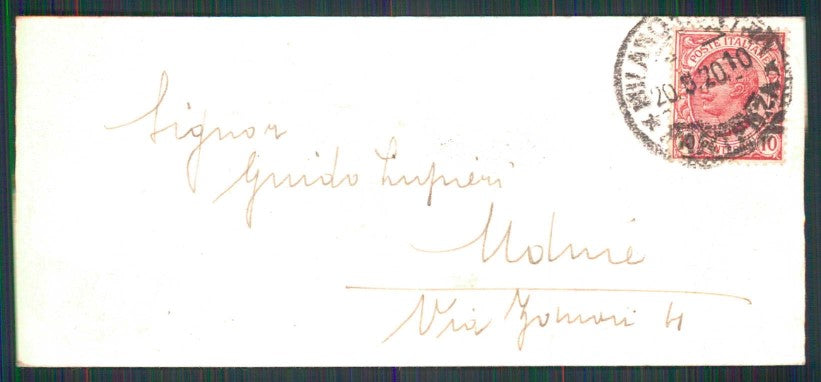 MILANO
20.9.20 10
POSTE ITALIANE
10 10
Signor
Guido Lupieri
Udine
Via Zanon 4